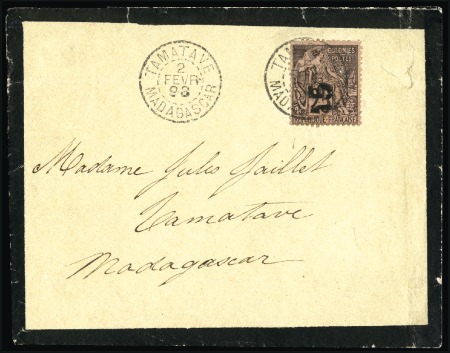 TAMATAVE
2
FEVR
93
MADAGASCAR
COLONIES
POSTES
15
FRANÇAISE
Madame Jules Jaillet
Tamatave
Madagascar